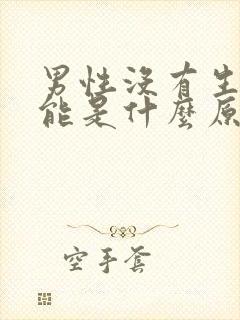 男性沒有生
能是什麼原
空手套